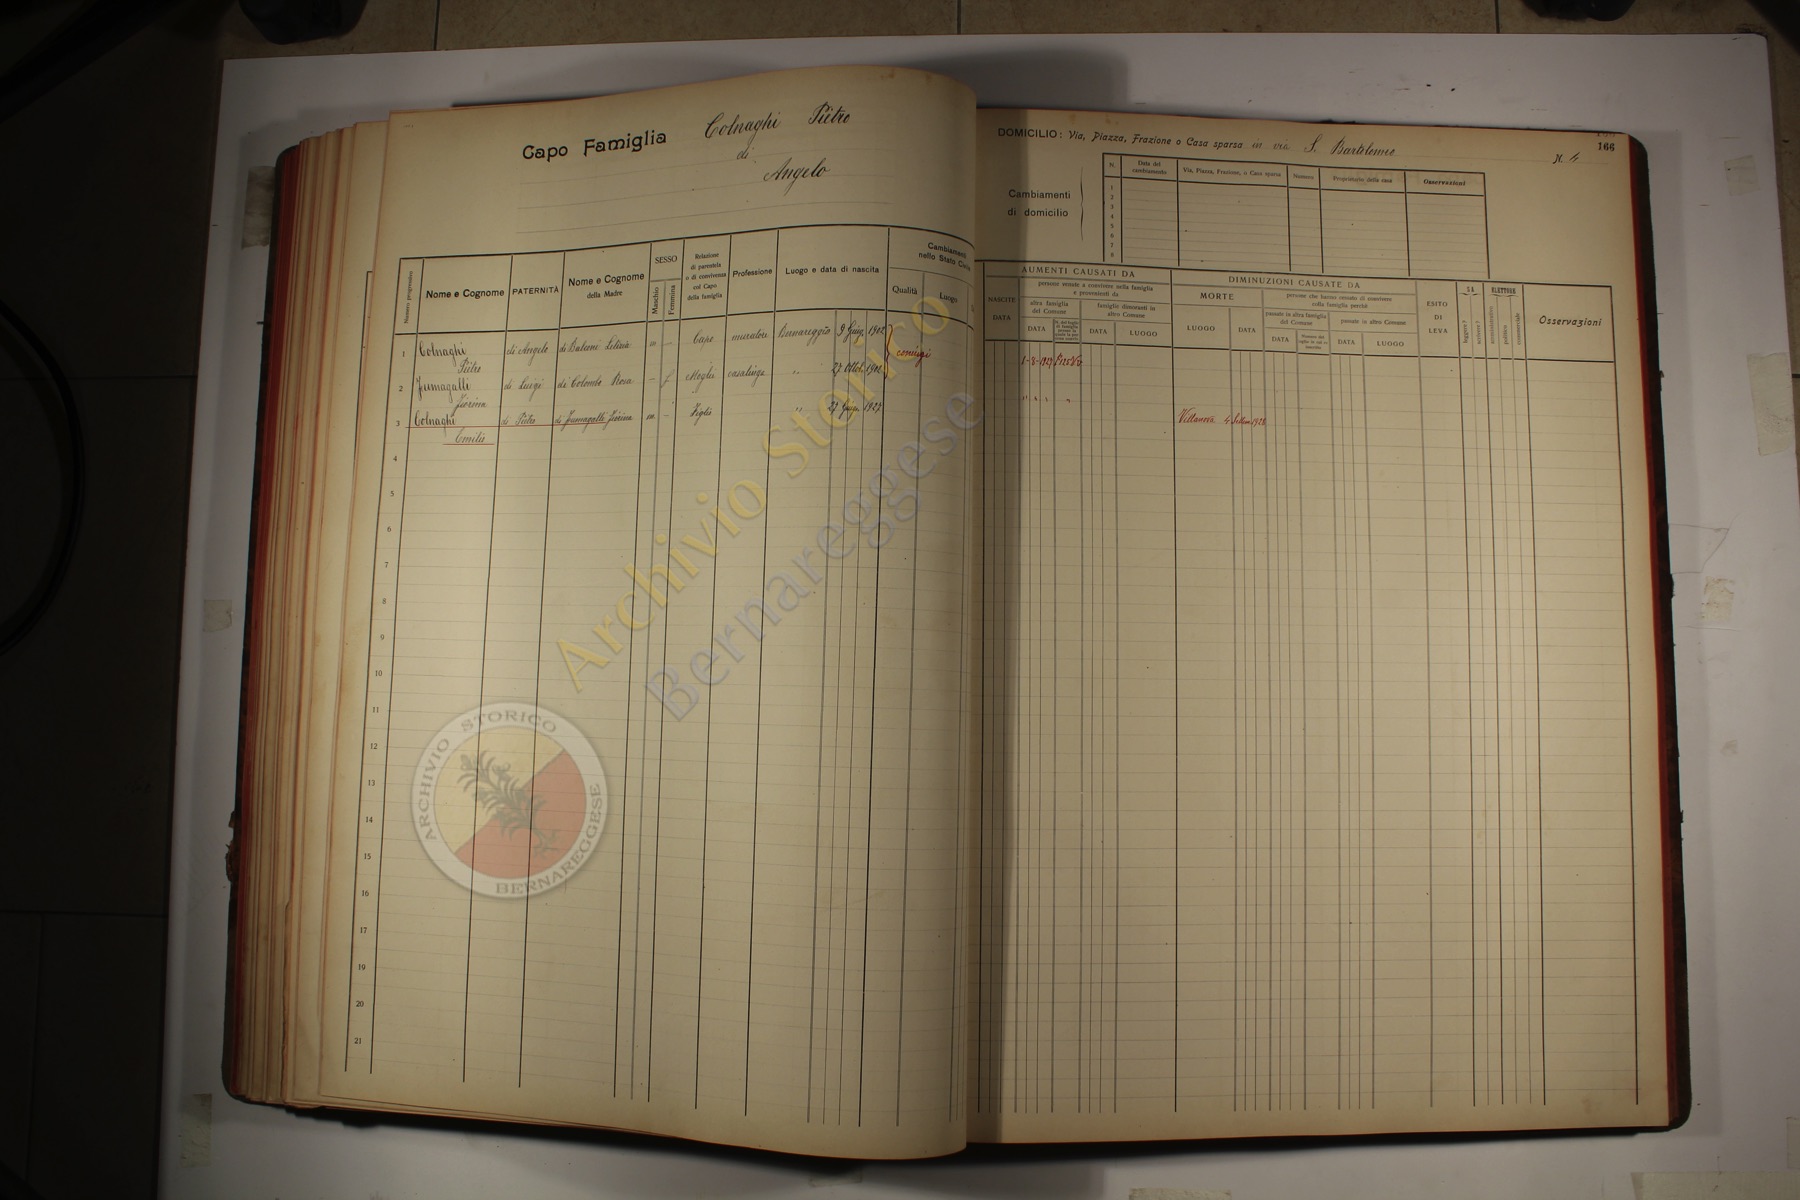 Capo Famiglia Colnaghi Pietro
di
Angelo
DOMICILIO: Via, Piazza, Frazione o Casa sparsa in via S. Bartolomeo N. 4
166
Cambiamenti
di domicilio
N. Data del cambiamento Via, Piazza, Frazione, o Casa sparsa Numero Proprietario della casa Osservazioni
1
2
3
4
5
6
7
8
Numero progressivo Nome e Cognome PATERNITÀ Nome e Cognome della Madre SESSO Maschio Femmina Relazione di parentela o di convivenza col Capo della famiglia Professione Luogo e data di nascita Cambiamenti nello Stato Civile Qualità Luogo
1 Colnaghi Pietro di Angelo m – Capo muratore Bernareggio 9 1902 coniugi
2 Fumagalli Fiorina di Luigi di Colombo Rosa – f Moglie casalinga " 27 Ott. 1902
3 Colnaghi Emilio di Pietro di Fumagalli Fiorina m – Figlio " 27 1927
4
5
6
7
8
9
10
11
12
13
14
15
16
17
18
19
20
21
NASCITE DATA
AUMENTI CAUSATI DA
persone venute a convivere nella famiglia e provenienti da
altra famiglia del Comune DATA
famiglie dimoranti in altro Comune DATA LUOGO
DIMINUZIONI CAUSATE DA
MORTE LUOGO DATA
persone che hanno cessato di convivere colla famiglia perchè
passate in altra famiglia del Comune DATA
passate in altro Comune DATA LUOGO
ESITO DI LEVA
SA leggere? scrivere?
ELETTORE amministrativo politico commerciale
Osservazioni
1-8-1927
" " " "
Villanova 4 Settem 1928
Archivio Storico
Bernareggese
ARCHIVIO STORICO
BERNAREGGESE